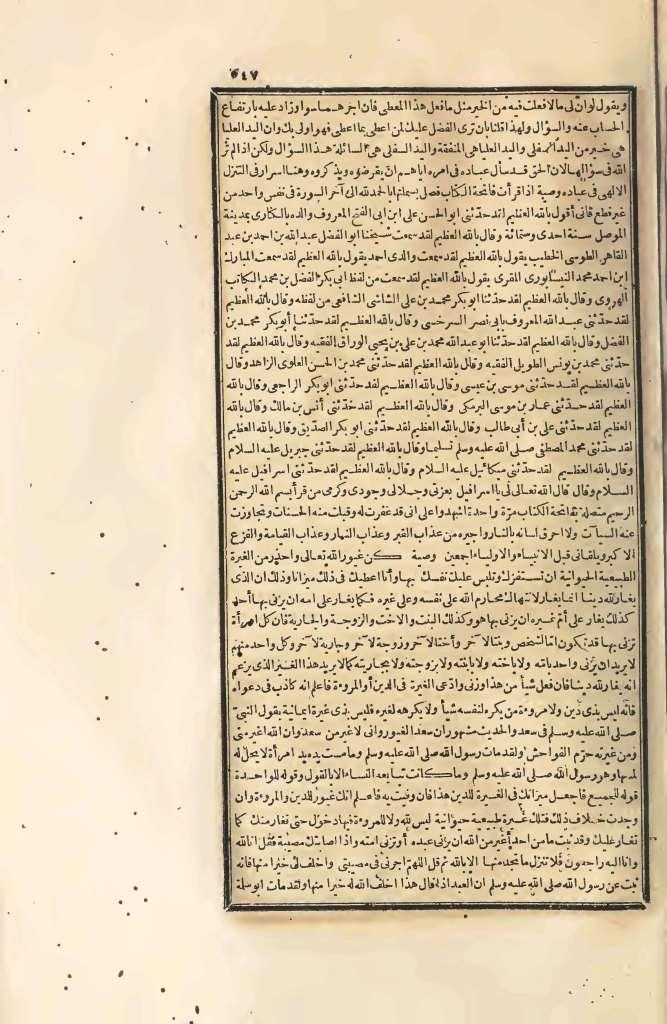 ٥٤٧
ويقول لو أن لى مالا فعلت فيه من الخير مثل ما فعل هذا المعطى فان اجرهما سوا وزاد عليه بارتفاع
الحساب عنه والسؤال ولهذا قلنا بان ترى الفضل عليك لمن اعطى بما اعطى فهو أولى بك وان اليد العليا
هى خير من اليد السفلى واليد العليا هى المنفقة واليد السفلى هى السائلة هذا السؤال ولكن اذا لم تر
الله فى سؤالها لان الحق قد سأل عباده فى امره اياهم أن يقرضوه ويذكروه وهنا اسرار فى التنزل
الالهى فى عباده وصية اذا قرأت فاتحة الكتاب فصل بسملتها بالحمد لله الى آخر السورة فى نفس واحد من
غير قطع فانى أقول بالله العظيم لقد حدثنى ابو الحسن على ابن ابى الفتح المعروف والده بالكنارى بمدينة
الموصل سنة احدى وستمائة وقال بالله العظيم لقد سمعت شيخنا ابو الفضل عبد الله بن احمد بن عبد
القاهر الطوسى الخطيب يقول بالله العظيم لقد سمعت والدى احمد يقول بالله العظيم لقد سمعت المبارك
ابن احمد محمد النيسابورى المقرى يقول بالله العظيم لقد سمعت من لفظ ابى بكر الفضل بن محمد الكاتب
الهروى وقال بالله العظيم لقد حدثنا ابو بكر محمد بن على الشاشى الشافعى من لفظه وقال بالله العظيم
لقد حدثنى عبد الله المعروف بابى نصر السرخسى وقال بالله العظيم لقد حدثنا أبو بكر محمد بن
الفضل وقال بالله العظيم لقد حدثنا ابو عبد الله محمد بن على بن يحيى الوراق الفقيه وقال بالله العظيم لقد
حدثنى محمد بن يونس الطويل الفقيه وقال بالله العظيم لقد حدثنى محمد بن الحسن العلوى الزاهد وقال
بالله العظيم لقد حدثنى موسى بن عيسى وقال بالله العظيم لقد حدثنى ابو بكر الراجعى وقال بالله
العظيم لقد حدثنى عمار بن موسى البرمكى وقال بالله العظيم لقد حدثنى أنس بن مالك وقال بالله
العظيم لقد حدثنى على بن أبى طالب وقال بالله العظيم لقد حدثنى ابو بكر الصديق وقال بالله العظيم
لقد حدثنى محمد المصطفى صلى الله عليه وسلم تسليما وقال بالله العظيم لقد حدثنى جبريل عليه السلام
وقال بالله العظيم لقد حدثنى ميكائيل عليه السلام وقال بالله العظيم لقد حدثنى اسرافيل عليه
السلام وقال قال الله تعالى لى يا اسرافيل بعزتى وجلالى وجودى وكرمى من قرأ بسم الله الرحمن
الرحيم متصلة بفاتحة الكتاب مرة واحدة اشهدوا على انى قد غفرت له وقبلت منه الحسنات وتجاوزت
عنه السيآت ولا احرق لسانه بالنار واجيره من عذاب القبر وعذاب النار وعذاب القيامة والفزع
الاكبر ويلقانى قبل الانبياء والاولياء اجمعين وصية كن غيور الله تعالى واحذر من الغيرة
الطبيعية الحيوانية ان تستفزك وتلبس عليك نفسك بها وأنا اعطيك فى ذلك ميزانا وذلك ان الذى
يغار لله دينا انما يغار لانتهاك محارم الله على نفسه وعلى غيره فكما يغار على امه ان يزنى بها أحد
كذلك يغار على أم غيره ان يزنى بها هو وكذلك البنت والاخت والزوجة والجارية فان كل امرأة
تزنى بها قد تكون اما لشخص وبنتا لآخر وأختا لآخر وزوجة لآخر وجارية لآخر وكل واحد منهم
لا يريد ان يزنى واحد بامه ولا باخته ولا بابنته ولا بزوجته ولا بجاريته كما لا يريد هذا الغير الذى يزعم
انه يغار لله دينا فان فعل شيأ من هذا وزنى وادعى الغيرة فى الدين أو المروءة فاعلم انه كاذب فى دعواه
فانه ليس بذى دين ولا مروءة من يكره لنفسه شيأ ولا يكرهه لغيره فليس بذى غيرة ايمانية يقول النبى
صلى الله عليه وسلم فى سعد والحديث مشهور ان سعد الغيور وانى لا غير من سعد وان الله اغير منى
ومن غيرته حرم الفواحش ولقد مات رسول الله صلى الله عليه وسلم وما مست يده يد امرأة لا يحل له
لمسها وهو رسول الله صلى الله عليه وسلم وما كانت تبايعه النساء الا بالقول وقوله للواحدة
قوله للجميع فاجعل ميزانك فى الغيرة للدين هذا فان وفيت به فاعلم انك غيور للدين والمروءة وان
وجدت خلاف ذلك فتلك غيرة طبيعية حيوانية ليس لله ولا للمروءة فيها دخول حتى تغار منك كما
تغار عليك وقد ثبت ما من احد أغير من الله ان يزنى عبده أو تزنى امته واذا اصابتك مصيبة فقل انا لله
وانا اليه راجعون فلا تنزل ما تجد منها الا بالله ثم قل اللهم اجرنى فى مصيبتى واخلف لى خيرا منها فانه
ثبت عن رسول الله صلى الله عليه وسلم ان العبد اذا قال هذا اخلف الله له خيرا منها ولقد مات ابو سلة